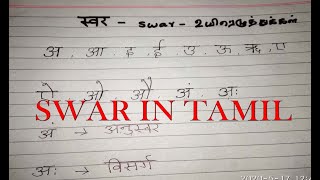 स्वर - swar - உயிரெழுத்துக்கள்
अ, आ, इ, ई, उ, ऊ, ऋ, ए
ऐ, ओ, औ, अं, अः
SWAR IN TAMIL
अं → अनुस्वर
अः → विसर्ग